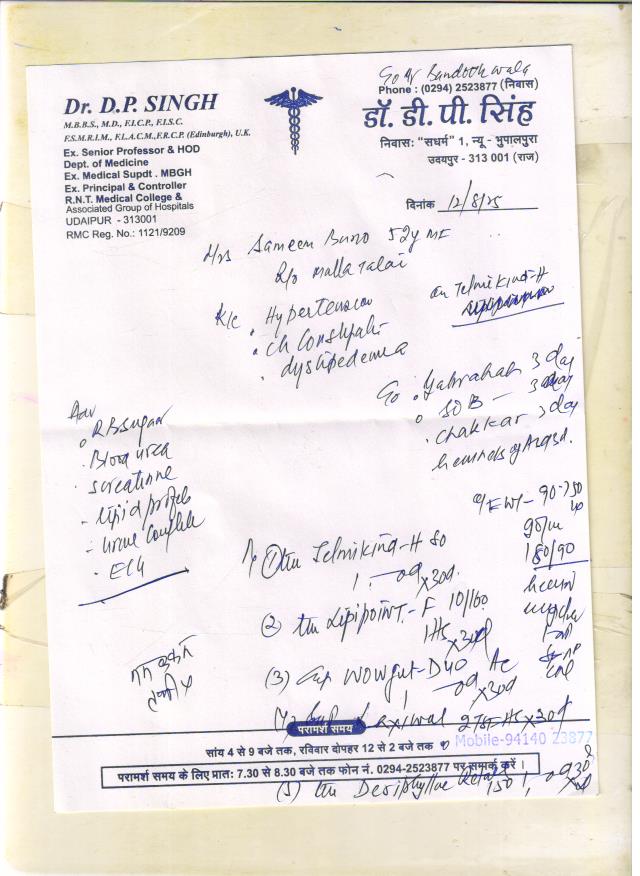 Dr. D.P. SINGH
M.B.B.S., M.D., F.I.C.P., F.I.S.C.
F.S.M.R.I.M., F.I.A.C.M., F.R.C.P. (Edinburgh), U.K.
Ex. Senior Professor & HOD
Dept. of Medicine
Ex. Medical Supdt . MBGH
Ex. Principal & Controller
R.N.T. Medical College &
Associated Group of Hospitals
UDAIPUR - 313001
RMC Reg. No.: 1121/9209
Bandookwala
Phone : (0294) 2523877 (निवास)
डॉ. डी. पी. सिंह
निवासः "सधर्म" 1, न्यू - भुपालपुरा
उदयपुर - 313 001 (राज)
दिनांक 12/8/25
Mrs Sameem 52y
R/o Malla Talai
K/c • Hypertension
• Ch Constipati
•
on Telmiking-H
C/o • Gabrahat 3 day
• SOB - 3 day
• Chakkar 3 day
Adv
• RBSugar
• Blood urea
• Screatinne
- lipid profile
- urine complete
• ECG
90/m
180/90
① Tab Telmiking-H 80
1 - od x 30d.
② Tab Lipipoint-F 10/160
1 HS x 30d
(3) Cap Wowgut-Duo Ac
1 od x 30d
(4) Laxiwal 2 TSF HS x 30d
परामर्श समय
सांय 4 से 9 बजे तक, रविवार दोपहर 12 से 2 बजे तक
Mobile-94140 23877
परामर्श समय के लिए प्रातः 7.30 से 8.30 बजे तक फोन नं. 0294-2523877 पर सम्पर्क करें ।
(5) Tab Deriphyllin Retard 150 1